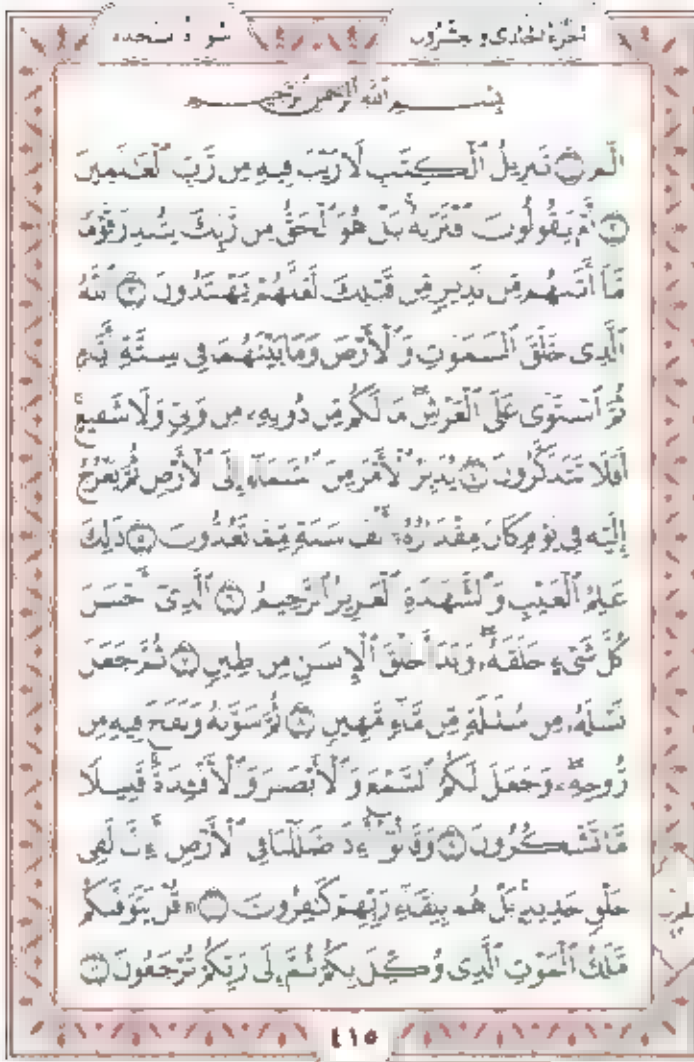 الجزء الحادي والعشرون سورة السجدة
بِسْمِ ٱللَّهِ ٱلرَّحْمَٰنِ ٱلرَّحِيمِ
الٓمٓ ۝١ تَنزِيلُ ٱلْكِتَٰبِ لَا رَيْبَ فِيهِ مِن رَّبِّ ٱلْعَٰلَمِينَ
۝٢ أَمْ يَقُولُونَ ٱفْتَرَىٰهُ ۚ بَلْ هُوَ ٱلْحَقُّ مِن رَّبِّكَ لِتُنذِرَ قَوْمًا
مَّآ أَتَىٰهُم مِّن نَّذِيرٍ مِّن قَبْلِكَ لَعَلَّهُمْ يَهْتَدُونَ ۝٣ ٱللَّهُ
ٱلَّذِى خَلَقَ ٱلسَّمَٰوَٰتِ وَٱلْأَرْضَ وَمَا بَيْنَهُمَا فِى سِتَّةِ أَيَّامٍ
ثُمَّ ٱسْتَوَىٰ عَلَى ٱلْعَرْشِ ۖ مَا لَكُم مِّن دُونِهِۦ مِن وَلِىٍّ وَلَا شَفِيعٍ ۚ
أَفَلَا تَتَذَكَّرُونَ ۝٤ يُدَبِّرُ ٱلْأَمْرَ مِنَ ٱلسَّمَآءِ إِلَى ٱلْأَرْضِ ثُمَّ يَعْرُجُ
إِلَيْهِ فِى يَوْمٍ كَانَ مِقْدَارُهُۥٓ أَلْفَ سَنَةٍ مِّمَّا تَعُدُّونَ ۝٥ ذَٰلِكَ
عَٰلِمُ ٱلْغَيْبِ وَٱلشَّهَٰدَةِ ٱلْعَزِيزُ ٱلرَّحِيمُ ۝٦ ٱلَّذِىٓ أَحْسَنَ
كُلَّ شَىْءٍ خَلَقَهُۥ ۖ وَبَدَأَ خَلْقَ ٱلْإِنسَٰنِ مِن طِينٍ ۝٧ ثُمَّ جَعَلَ
نَسْلَهُۥ مِن سُلَٰلَةٍ مِّن مَّآءٍ مَّهِينٍ ۝٨ ثُمَّ سَوَّىٰهُ وَنَفَخَ فِيهِ مِن
رُّوحِهِۦ ۖ وَجَعَلَ لَكُمُ ٱلسَّمْعَ وَٱلْأَبْصَٰرَ وَٱلْأَفْـِٔدَةَ ۚ قَلِيلًا
مَّا تَشْكُرُونَ ۝٩ وَقَالُوٓا۟ أَءِذَا ضَلَلْنَا فِى ٱلْأَرْضِ أَءِنَّا لَفِى
خَلْقٍ جَدِيدٍۭ ۚ بَلْ هُم بِلِقَآءِ رَبِّهِمْ كَٰفِرُونَ ۝١٠ قُلْ يَتَوَفَّىٰكُم
مَّلَكُ ٱلْمَوْتِ ٱلَّذِى وُكِّلَ بِكُمْ ثُمَّ إِلَىٰ رَبِّكُمْ تُرْجَعُونَ ۝١١
٤١٥